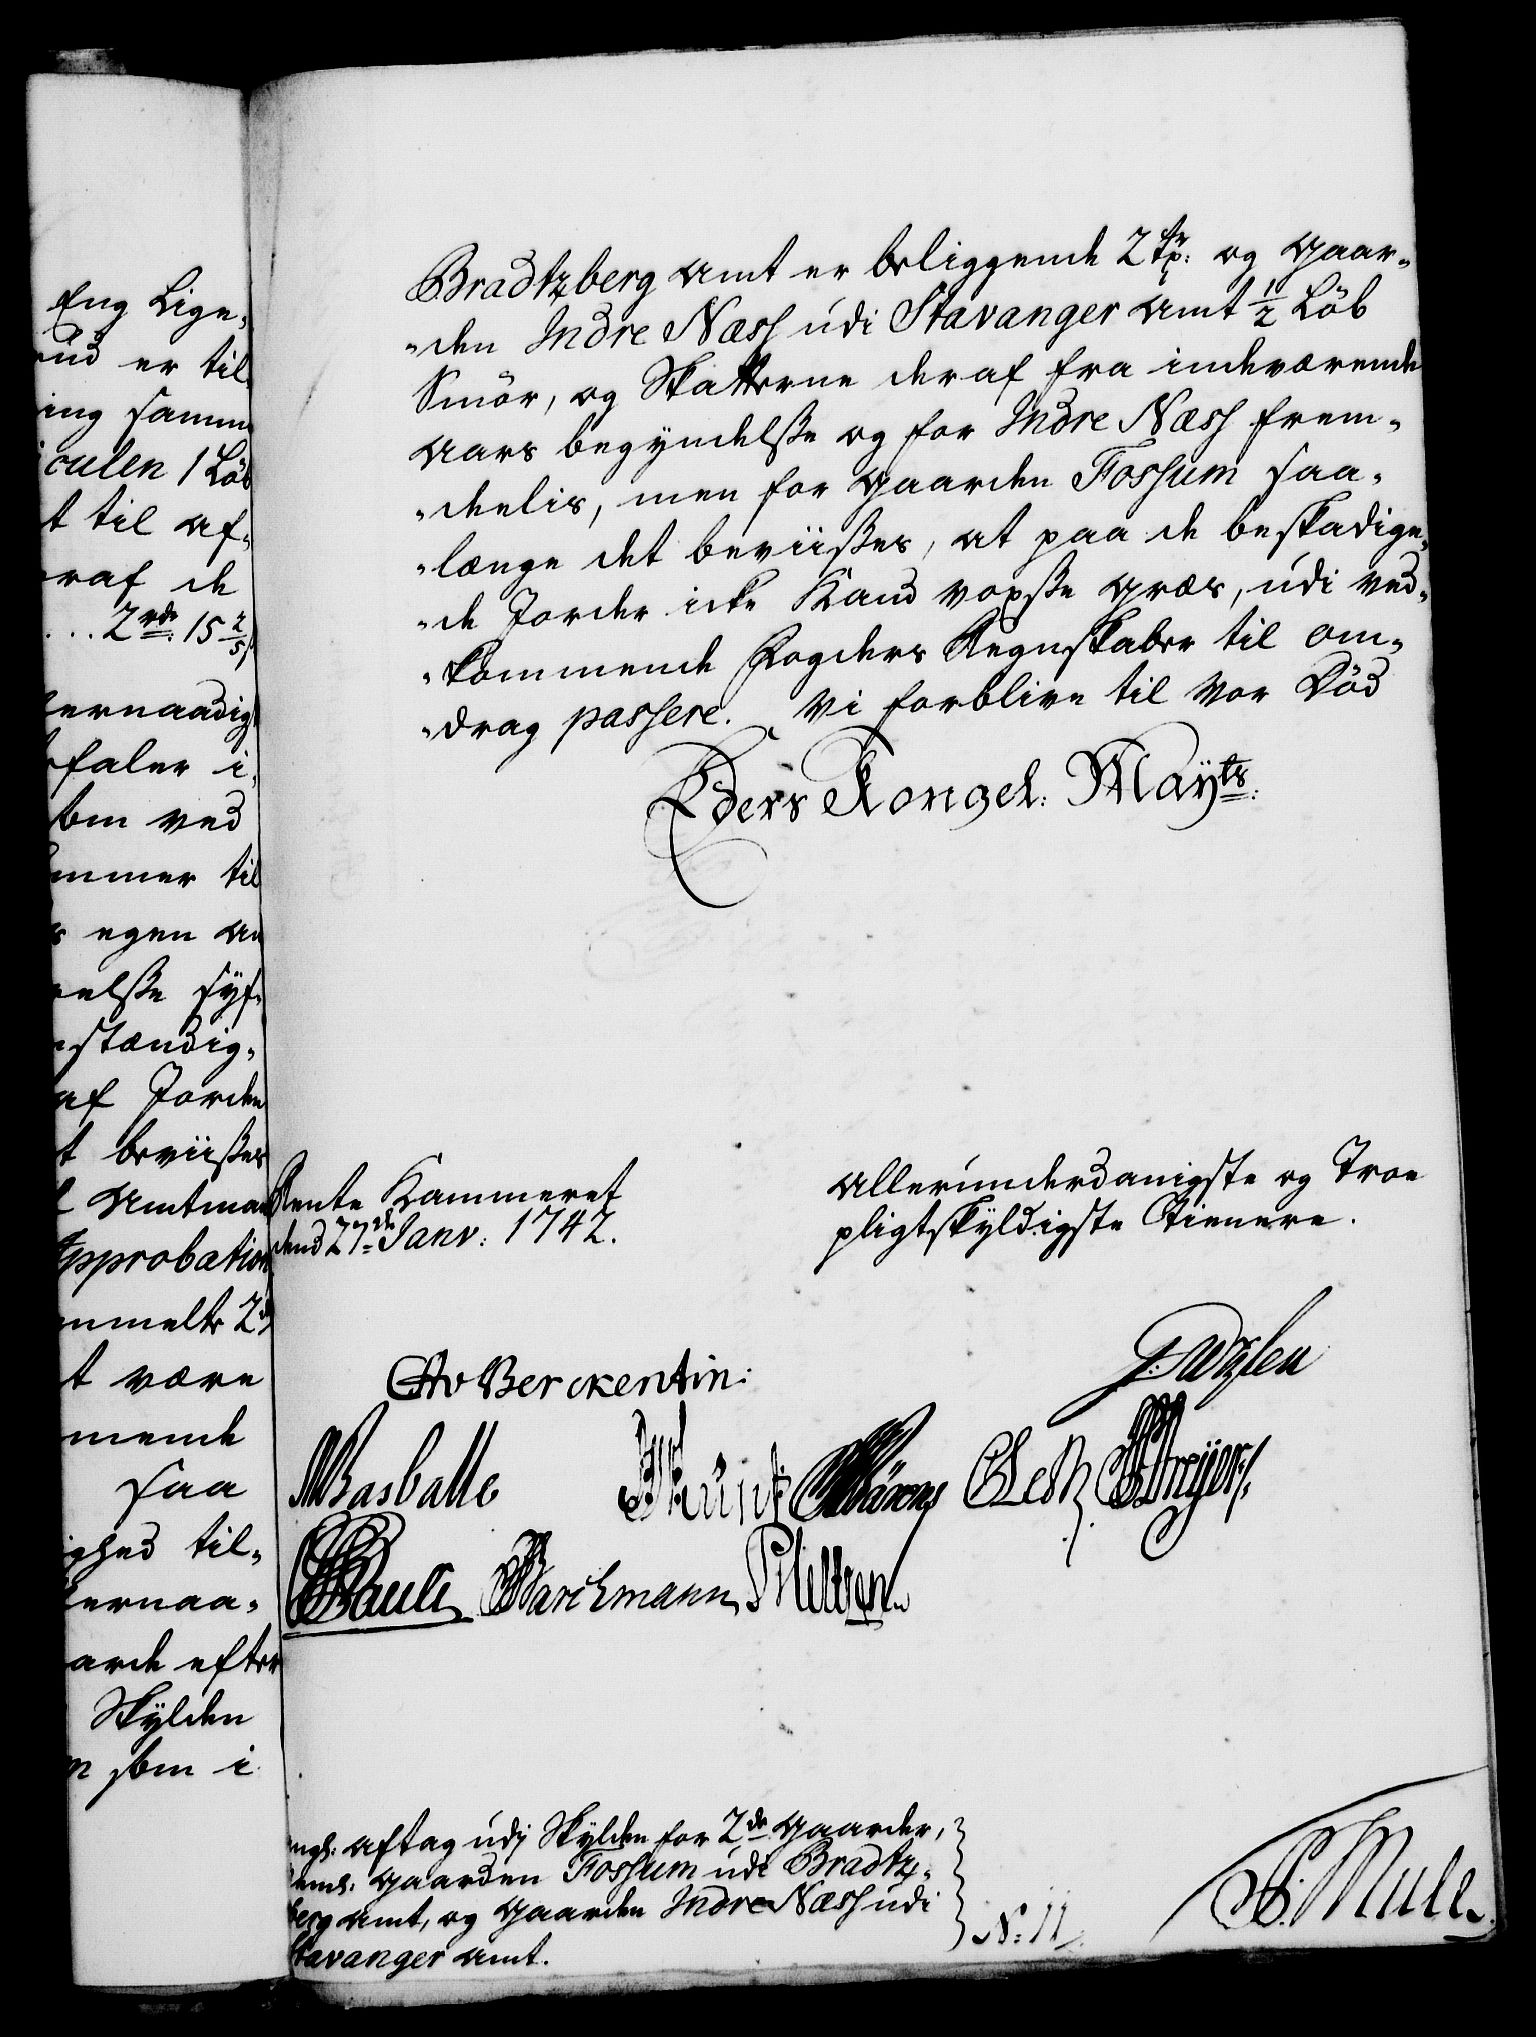 Eng Lige-
er til
ing samme
culen 1 Løb
t til af-
raf de
... 2 rdr: 15 2/5 s
lernaadigst
faler i
som ved
mmer til
egen an
else syf-
stændig-
af Jorden
t beviisses
Amtmand
Approbation
nmelte 2de
t være
mende
saa
ghed til-
lernaa-
arde efter
Skÿlden
som i
Bradtzberg Amt er beliggende 2 og Gaar-
-den Indre Næss udi Stavanger Amt 1/2 Löb
Smör, og Skatterne deraf fra indeværende
Aars begyndelsse og for Indre Næss frem-
-deelis, men for Gaarden Fossum saa-
-længe det beviisses, at paa de beskadige-
-de Jorder icke Kand voxsse Græs, udi ved-
-kommende Fogders Regnskaber til om-
-drag passere. Vi forblive til Vor Död
Eders Kongel: Mayts:
Rente Kammeret
dend 27de Janv: 1742.
Allerunderdanigste og Troe
pligtskÿldigste Tienere.
CAv Berckentin:
Basballe
Pauli Barchmann
angl: aftag udj Skÿlden for 2de Gaarder,
neml: Gaarden Fossum udi Bradtz-
berg Amt, og Gaarden Indre Næss udi
Stavanger Amt.
No: 11.
Mule